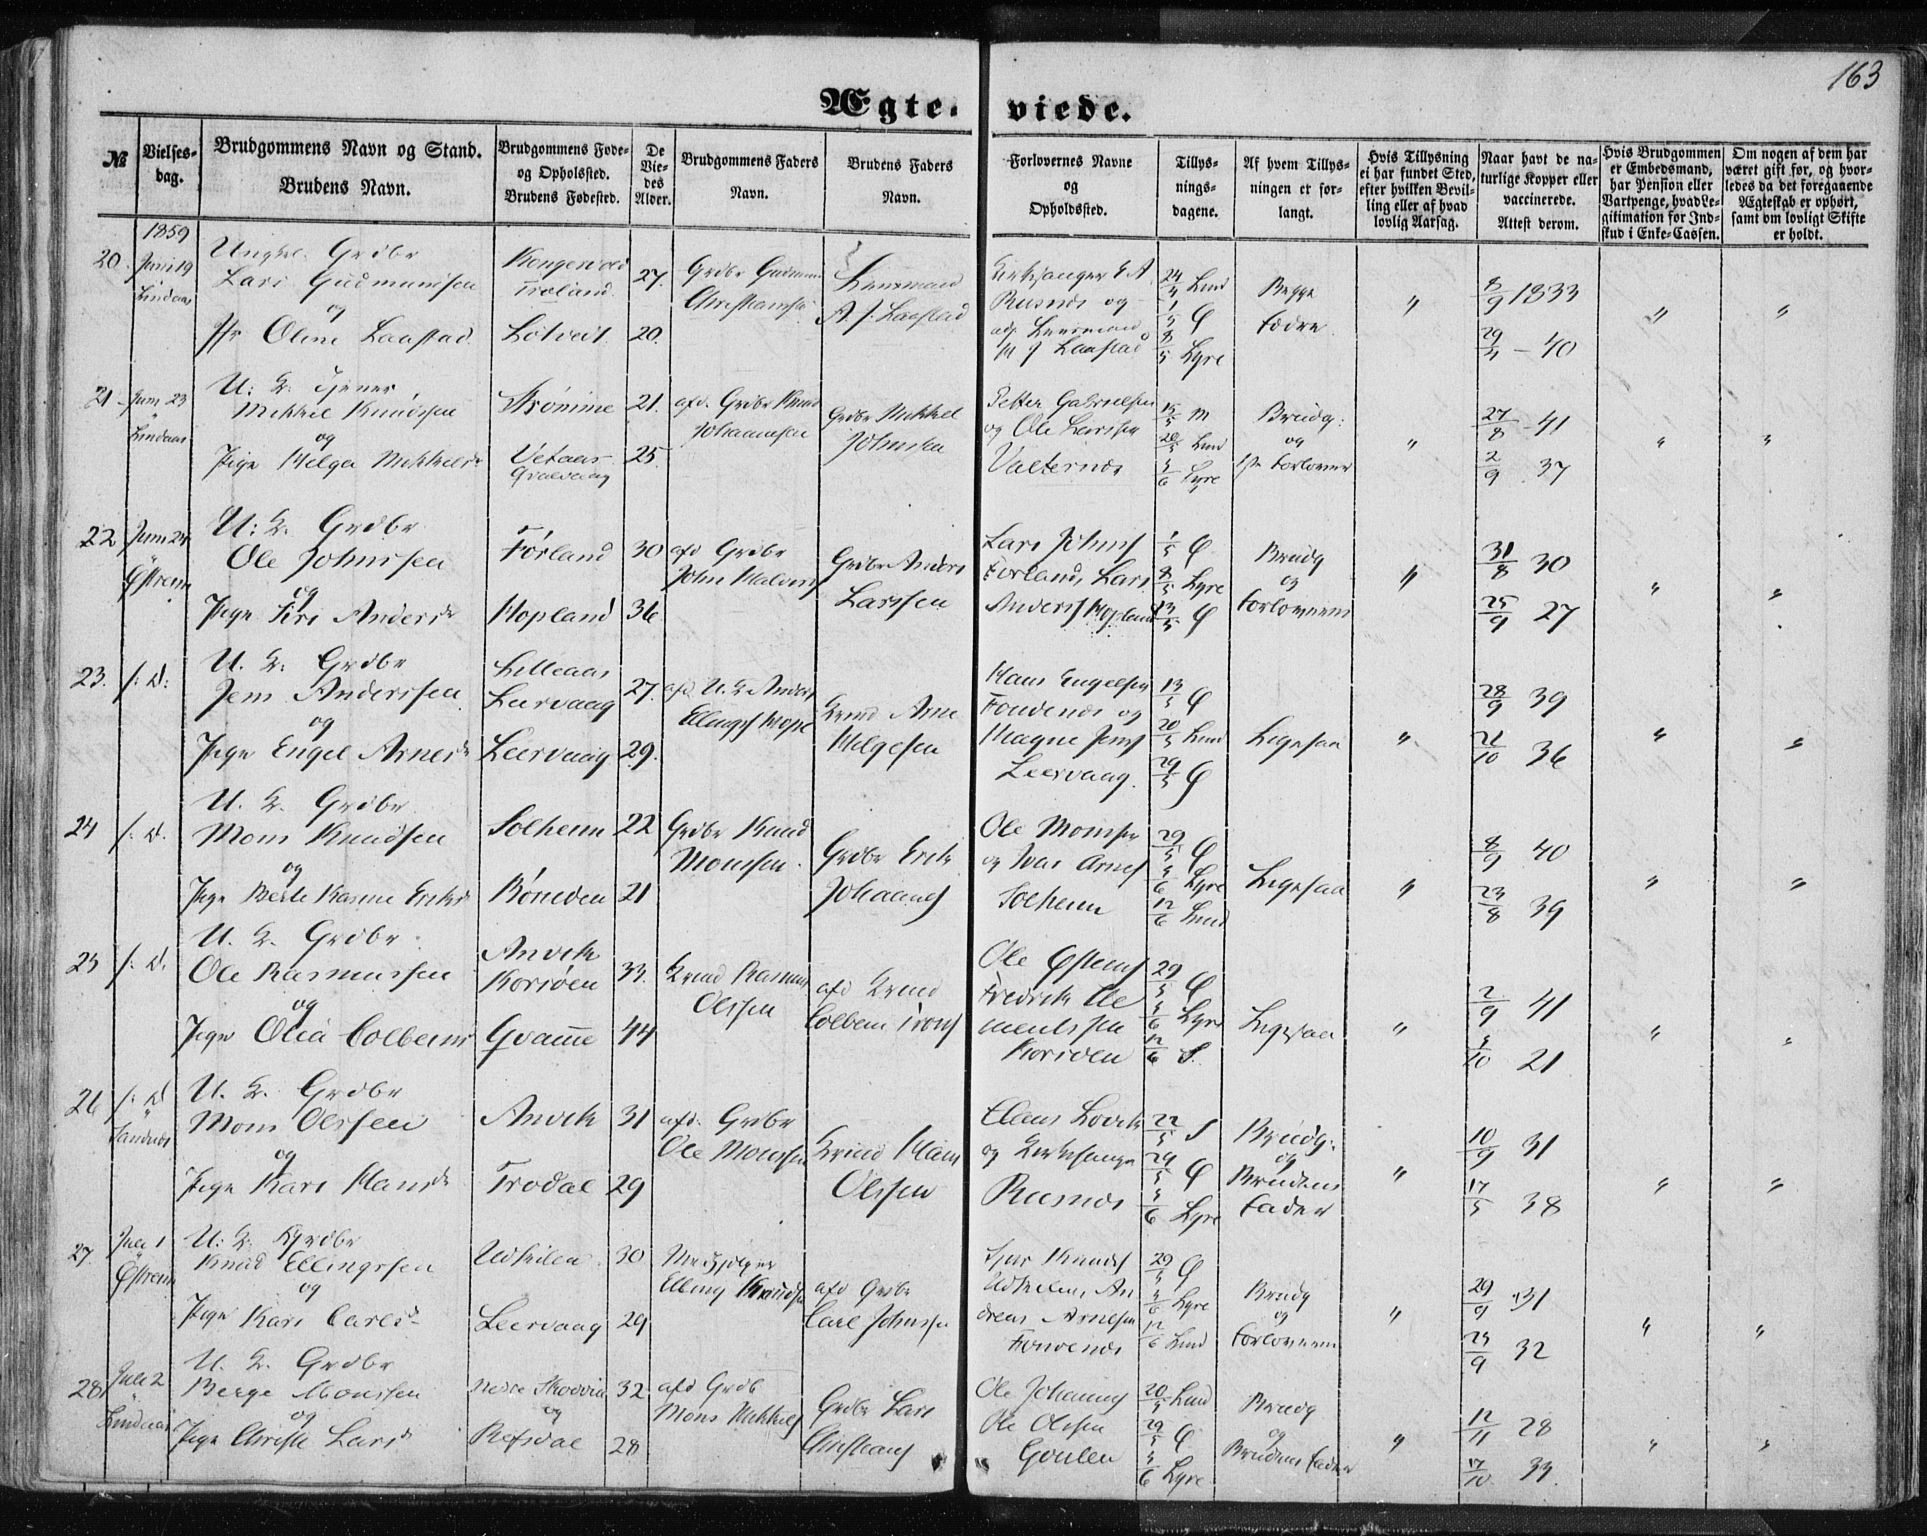 163
Ægteviede.
№
Vielses-
dag.
Brudgommens Navn og Stand.
Brudens Navn.
Brudgommens Føde-
og Opholssted.
Brudens Fødested.
De
Vie-
des
Alder.
Brudgommens Faders
Navn.
Brudens Faders
Navn.
Forlovernes Navne
og
Opholdssted.
Tillys-
nings-
dagene.
Af hvem Tillys-
ningen er for-
langt.
Hvis Tillysning
ei har fundet Sted,
efter hvilken Bevil-
ling eller af hvad
lovlig Aarsag.
Naar havt de na-
turlige Kopper eller
vaccinerede.
Attest derom.
Hvis Brudgommen
er Embedsmand,
har Pension eller
Vartpenge, hvad Le-
gitimation for Ind-
skud i Enke-Cassen.
Om nogen af dem har
været gift før, og hvor-
ledes da det foregaaende
Ægteskab er ophørt,
samt om lovligt Skifte
er holdt.
1859
20. Juni 19 Lindaas
Ungkl. Grdbr
Lars Gudmundsen
og
Oline Laastad
Troland
Lotveit
27.
20.
Grdbr
Lensmand
A. J. Laastad
Kirkesanger
Rusnes og
Lensmand
Laastad
24/4 Lind
1/5 Ø
8/5 Lyre
Begge
Fædre
"
8/9 1833
29/4 - 40
"
"
21 Juni 23 Lindaas
U: K:
Mikkel Knudssen
og
Pige Helga Mikkelsd
Strømme
Vetaas
21.
25.
afd. Grdbr Knud
Johannesen
Grdbr Mikkel
Johnssen
Petter Gabrielsen
og Ole Larssen
Valternes
15/5 M
20/5 Lind
5/6 Lyre
Brudg:
og
Forlover
"
27/8 - 41
2/9 37
"
"
22 Juni 24 Østrem
U: K. Grdbr
Ole Johnssen
og
Pige Siri Andersd
Førland
Hopland
30
36
afd Grdbr
John
Grdbr Anders
Larssen
Lars Johns
Førland, Lars
Anders Hopland
1/5 Ø
8/5 Lyre
13/5 Ø
Brudg
og
Forloveren
"
31/8 30
25/9 27
"
"
23. s: D:
U. K. Grdbr
Jens Anderssen
og
Pige Engel Arnesd
Lilleaas
Leervaag
Leervaag
27.
29.
afd. U. K. Anders
Ellings Hope
Arne
Helgesen
Hans Engelsen
Fondenes og
Magne Jens
Leervaag.
13/5 Ø
20/5 Lind
29/5 Ø
Ligesaa
"
28/9 39
21/10 36
"
"
24 s: D.
U. K. Grdbr
Mons Knudsen
og
Pige Berte Karine Eriksd
Solheim
22
21
Grdbr Knud
Monssen.
Grdbr Erik
Johannes
Ole Monssen
og Ivar Arnes
Solheim
29/5 Ø
5/6 Lyre
12/6 Lind
Ligesaa
"
8/9 40
23/8 39
"
"
25 s: D.
U. K. Grdbr.
Ole Rasmussen
og
Pige Olia Colbeins
Anvik
Korsøen
Qvamme
33.
44
Rasmus
Olssen
afd
Colbein
Ole Østens
Fredrik Cle
mentssen
Korsøen
29/5 Ø
5/6 Lyre
12/6 S.
Ligesaa
"
2/9 41
21
"
"
26 s: D Sandnes
U. K. Grdbr
Mons Olssen
og
Pige Kari Hansd
Anvik
Trodal
31
29
afd. Grdbr
Ole Monssen
Hans
Olssen
Claus Lovik
og Kirkesanger
Rusnes
22/5 S
29/5 Ø
5/6 Lyre
Brudg:
og
Brudens
Fader
"
10/9 31
17/5 38
"
"
27. Juli 1 Østrem
U. K. Grdbr
Knud Ellingssen
og
Pige Kari Carlsd
Leervaag
30
29
Elling Knudsen
afd Grdbr
Carl Johnssen
Knuds
An
dreas Arnesen
Fondenes
29/5 Ø
5/6 Lyre
12/6 Lind
Brudg
og
Forloveren
"
29/9 31
32
"
"
28 Juli 2 Lindaas
U. K. Grdbr
Berge Monssen
og
Pige Christi Larsd
og
Refsdal
32
28
afd Grdb
Mons Mikkels
Grdbr Lars
Christians
Ole Johannes
Ole Olssen
Goulen
20/5 Lind
29/5 Ø
5/6 Lyre
Brudg
og
Brudens Fader
"
12/11 28
17/10 33.
"
"